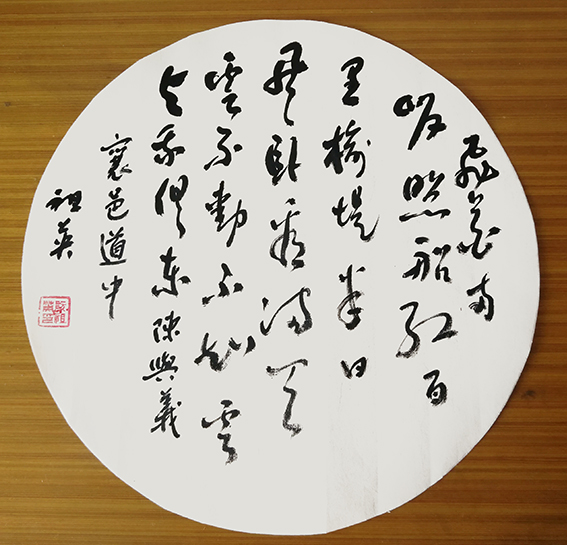 飛花两
岸照船红百
里榆堤半日
风卧看满天
雲不動不知雲
与我俱東 陳與義
襄邑道中
祖英